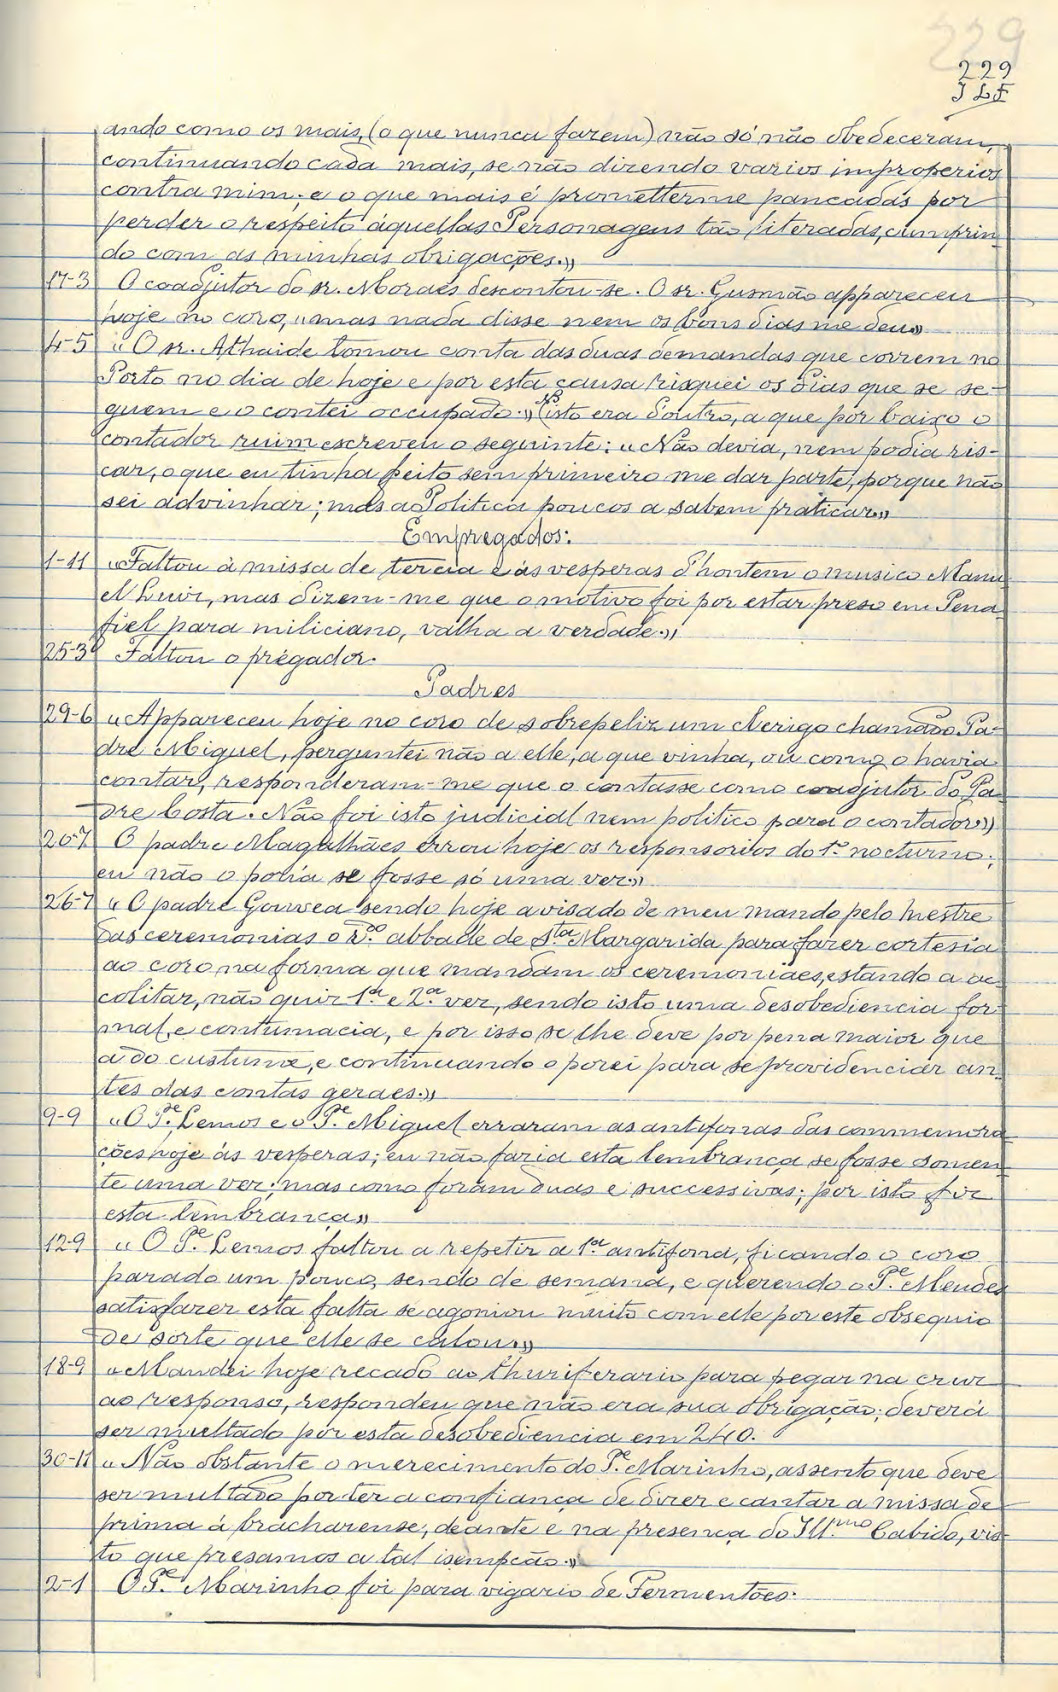 229
229
J L F
ando como os mais, (o que nunca fazem) não só não obedeceram,
continuando cada mais, se não dizendo varios improperios
contra mim; e o que mais é prometterme pancadas por
perder o respeito áquellas Personagens tão literadas, cumprin-
do com as minhas obrigações.»
17-3 O coadjutor do sr. Moraes descontou-se. O sr. Gusmão appareceu
hoje no coro, «mas nada disse nem os bons dias me deu»
4-5 «O sr. Athaide tomou conta das duas demandas que correm no
Porto no dia de hoje e por esta causa risquei os dias que se se-
guem e o contei occupado.» (isto era doutro, a que por baixo o
contador ruim escreveu o seguinte: «Não devia, nem podia ris-
car, o que eu tinha feito sem primeiro me dar parte, porque não
sei advinhar; mas a Politica poucos a sabem praticar»
Empregados:
1-11 «Faltou à missa de tercia e ás vesperas d'hontem o musico Manu
el Luiz, mas dizem-me que o motivo foi por estar preso em Pena-
fiel para miliciano, valha a verdade.»
25-3 Faltou o prégador.
Padres
29-6 «Appareceu hoje no coro de sobrepeliz um clerigo chamado Pa-
dre Miguel, perguntei não a elle, a que vinha, ou como o havia
contar, responderam-me que o contasse como coadjutor do Pa-
dre Costa. Não foi isto judicial nem politico para o contador»
20-7 O padre Magalhães errou hoje os responsorios do 1.º nocturno;
eu não o poria se fosse só uma vez»
26-7 «O padre Gouvea sendo hoje avisado de meu mando pelo Mestre
das ceremonias o R.do abbade de S.ta Margarida para fazer cortesia
ao coro na forma que mandam os ceremoniaes, estando a ac-
colitar, não quiz 1.ª e 2.ª vez, sendo isto uma desobediencia for-
mal, e contumacia, e por isso se lhe deve por pena maior que
a do custume, e continuando o porei para se providenciar an-
tes das contas geraes.»
9-9 «O P.e Lemos e o P.e Miguel erraram as antifonas das commemora
ções hoje ás vesperas; eu não faria esta lembrança se fosse somen-
te uma vez; mas como foram duas e successivas; por isto fiz
esta lembrança»
12-9 «O P.e Lemos faltou a repetir a 1.ª antifona, ficando o coro
parado um pouco, sendo de semana, e querendo o P.e Mendes
satisfazer esta falta se agoniou muito com elle por este obsequio
de sorte que elle se calou.»
18-9 «Mandei hoje recado ao thuriferario para pegar na cruz
ao responso, respondeu que não era sua obrigação; deverá
ser multado por esta desobediencia em 240.
30-11 «Não obstante o merecimento do P.e Marinho, assento que deve
ser multado por ter a confiança de dizer e cantar a missa de
prima á bracharense, deante e na presença do Ill.mo Cabido, vis-
to que presamos a tal isempção.»
2-1 O P.e Marinho foi para vigario de Fermentões.